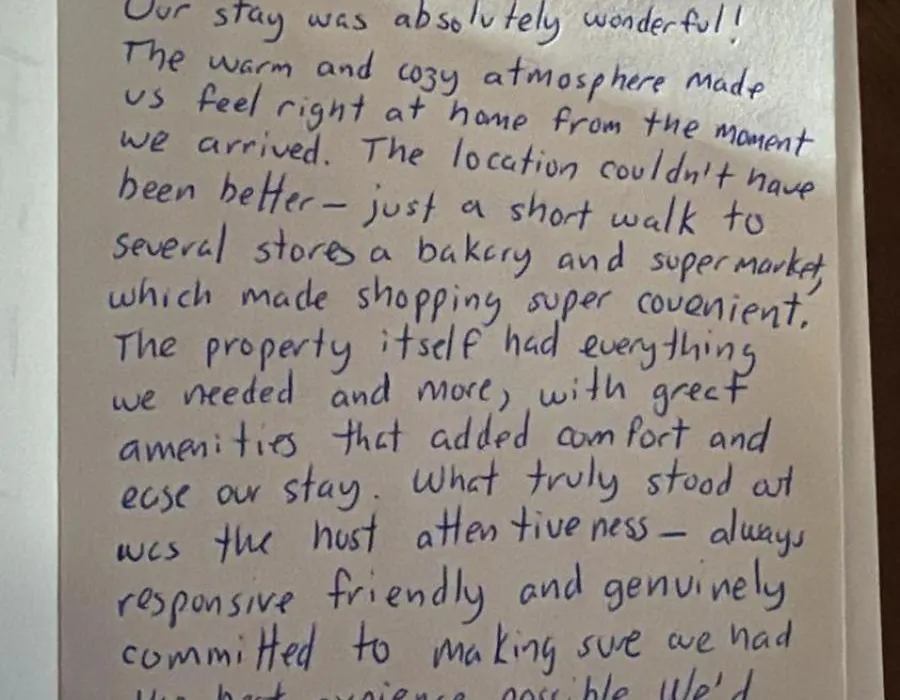 Our stay was absolutely wonderful!
The warm and cozy atmosphere made
us feel right at home from the moment
we arrived. The location couldn't have
been better – just a short walk to
several stores a bakery and supermarket,
which made shopping super covenient.
The property itself had everything
we needed and more, with great
amenities that added comfort and
ease our stay. What truly stood out
was the host attentiveness – always
responsive friendly and genuinely
committed to making sure we had
the best experience possible We'd